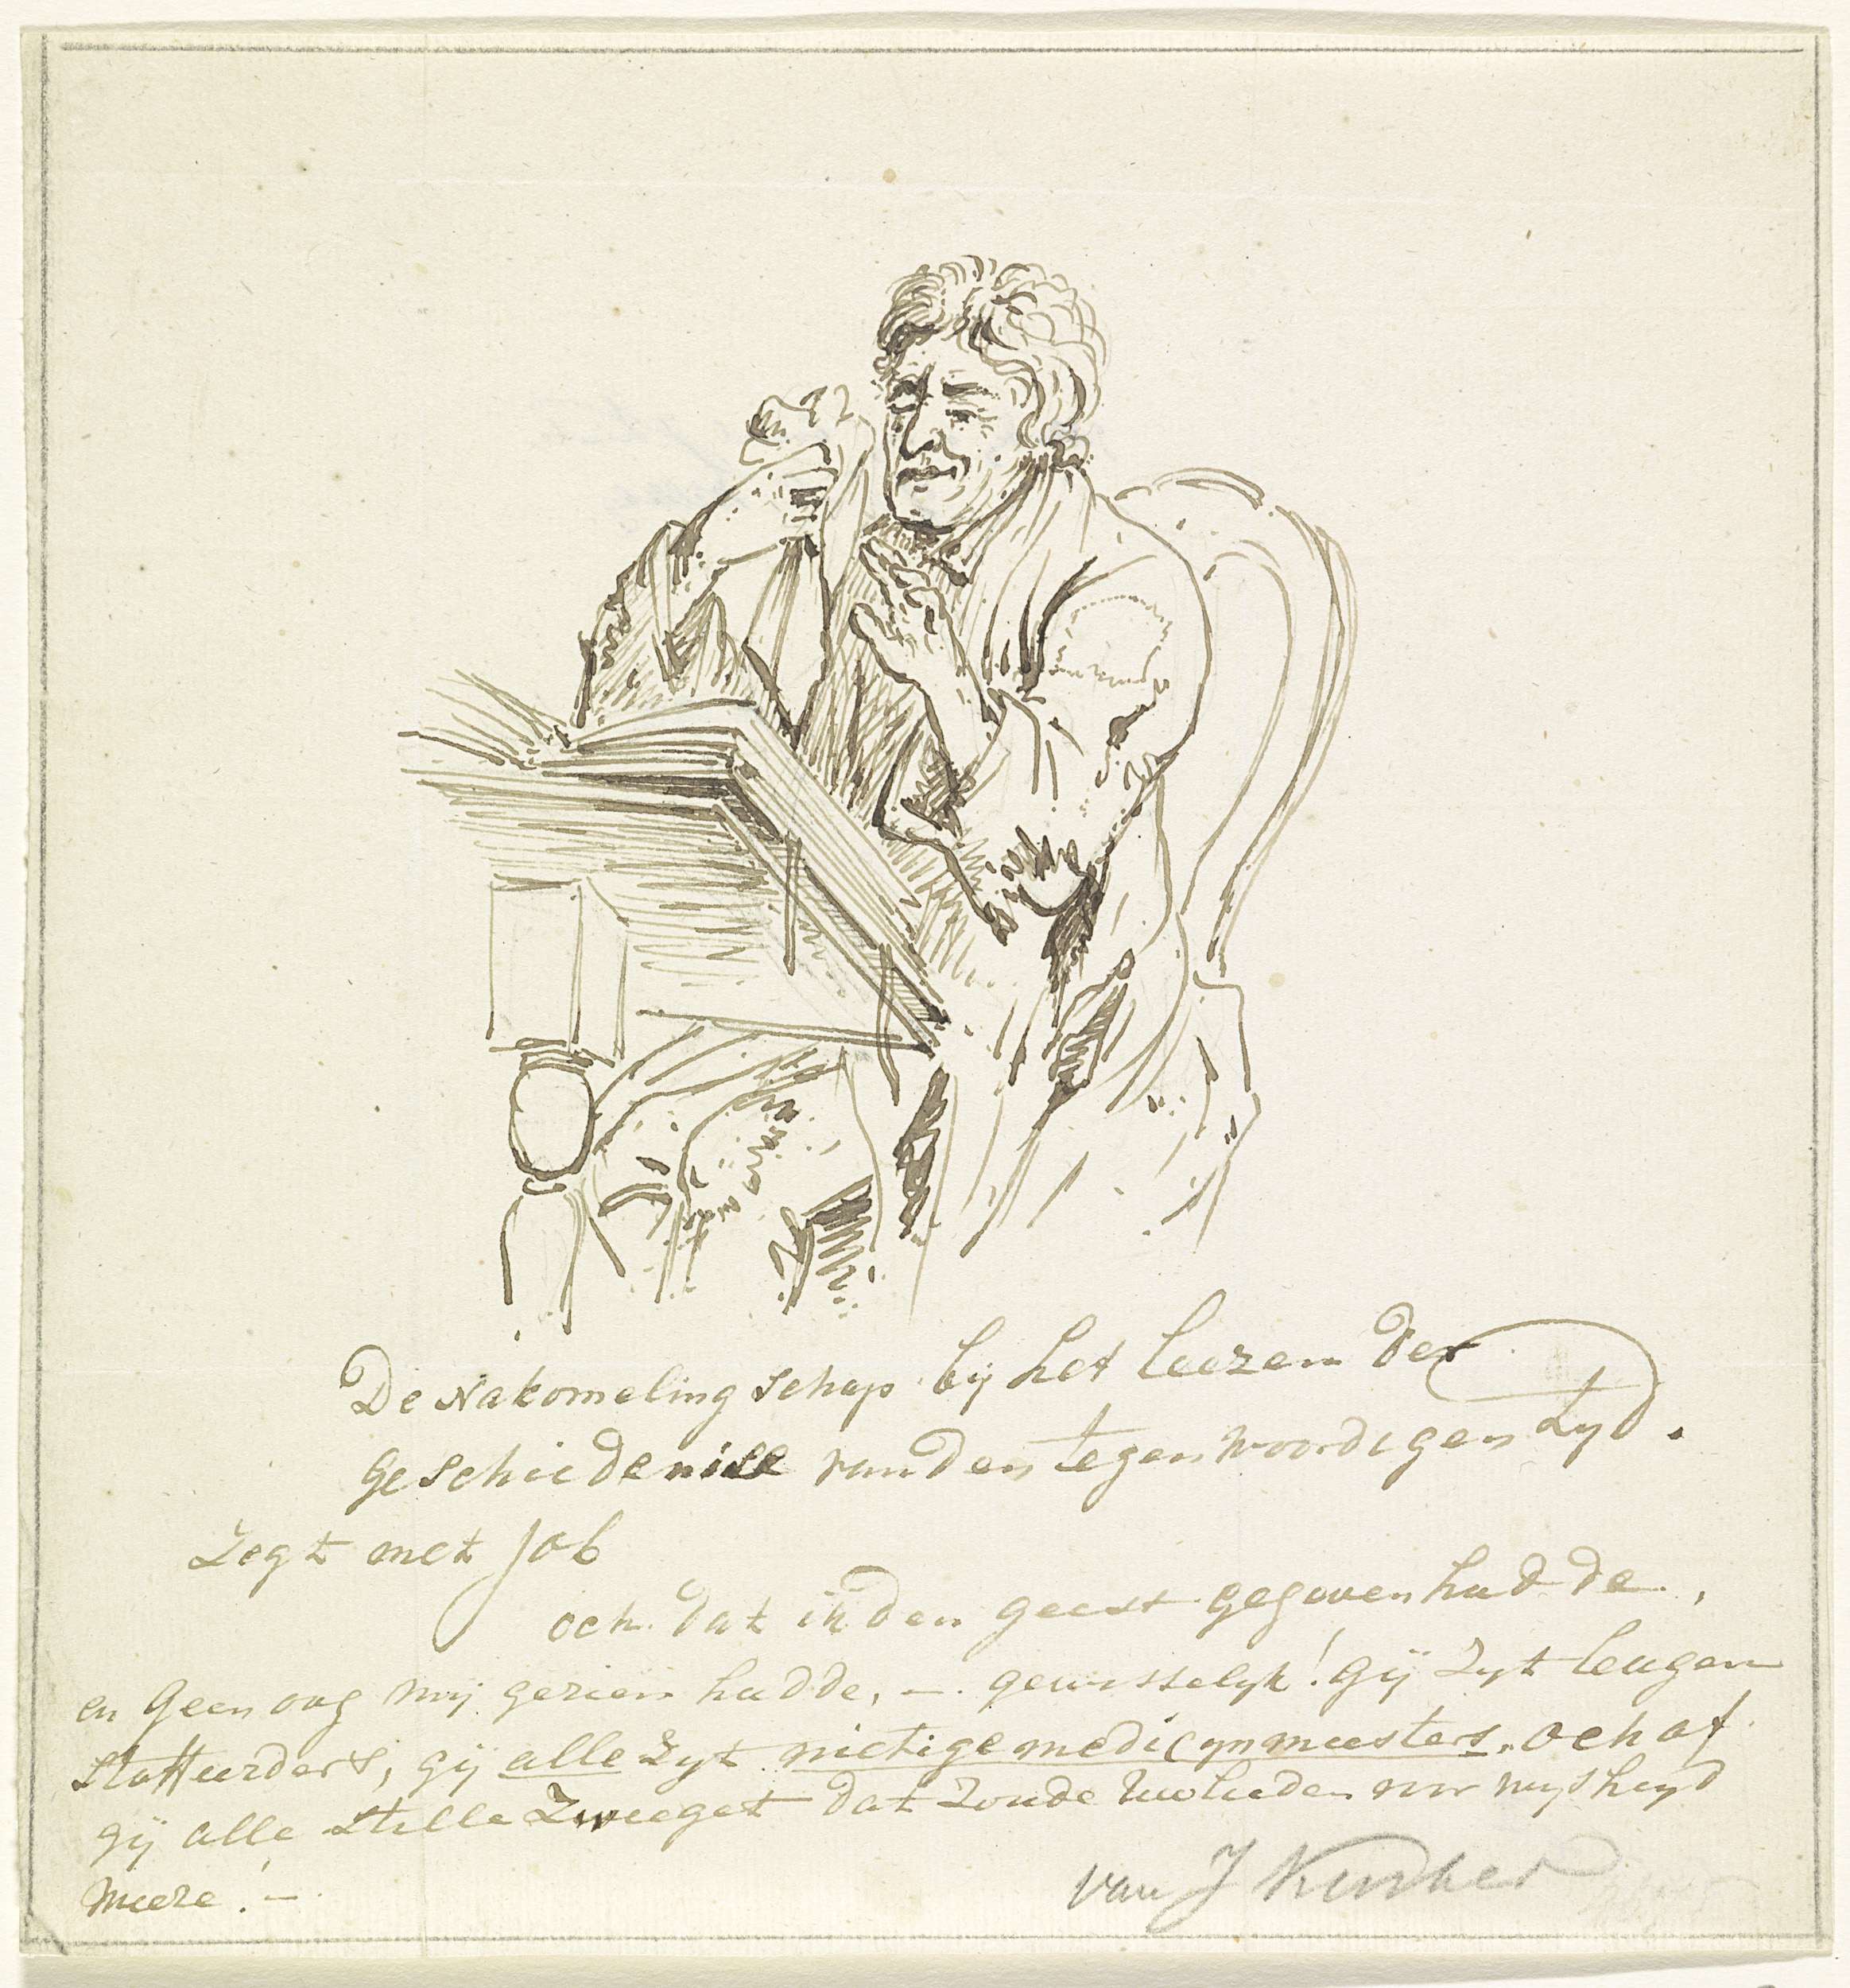 De Nakomelingschap bij het leezen der
geschiedenise van den tegenwoordigen tyd.
Zegt met Job
och dat ik den geest gegeven hadde,
en geen oog mij gezien hadde, —. gewisselyk! gij zyt leugen
stoffeerders, gij alle zyt nietige medicynmeesters. och of
gij alle stille zweeget dat zoude ulieden voor wysheyd
weeze! —
van J Kinker